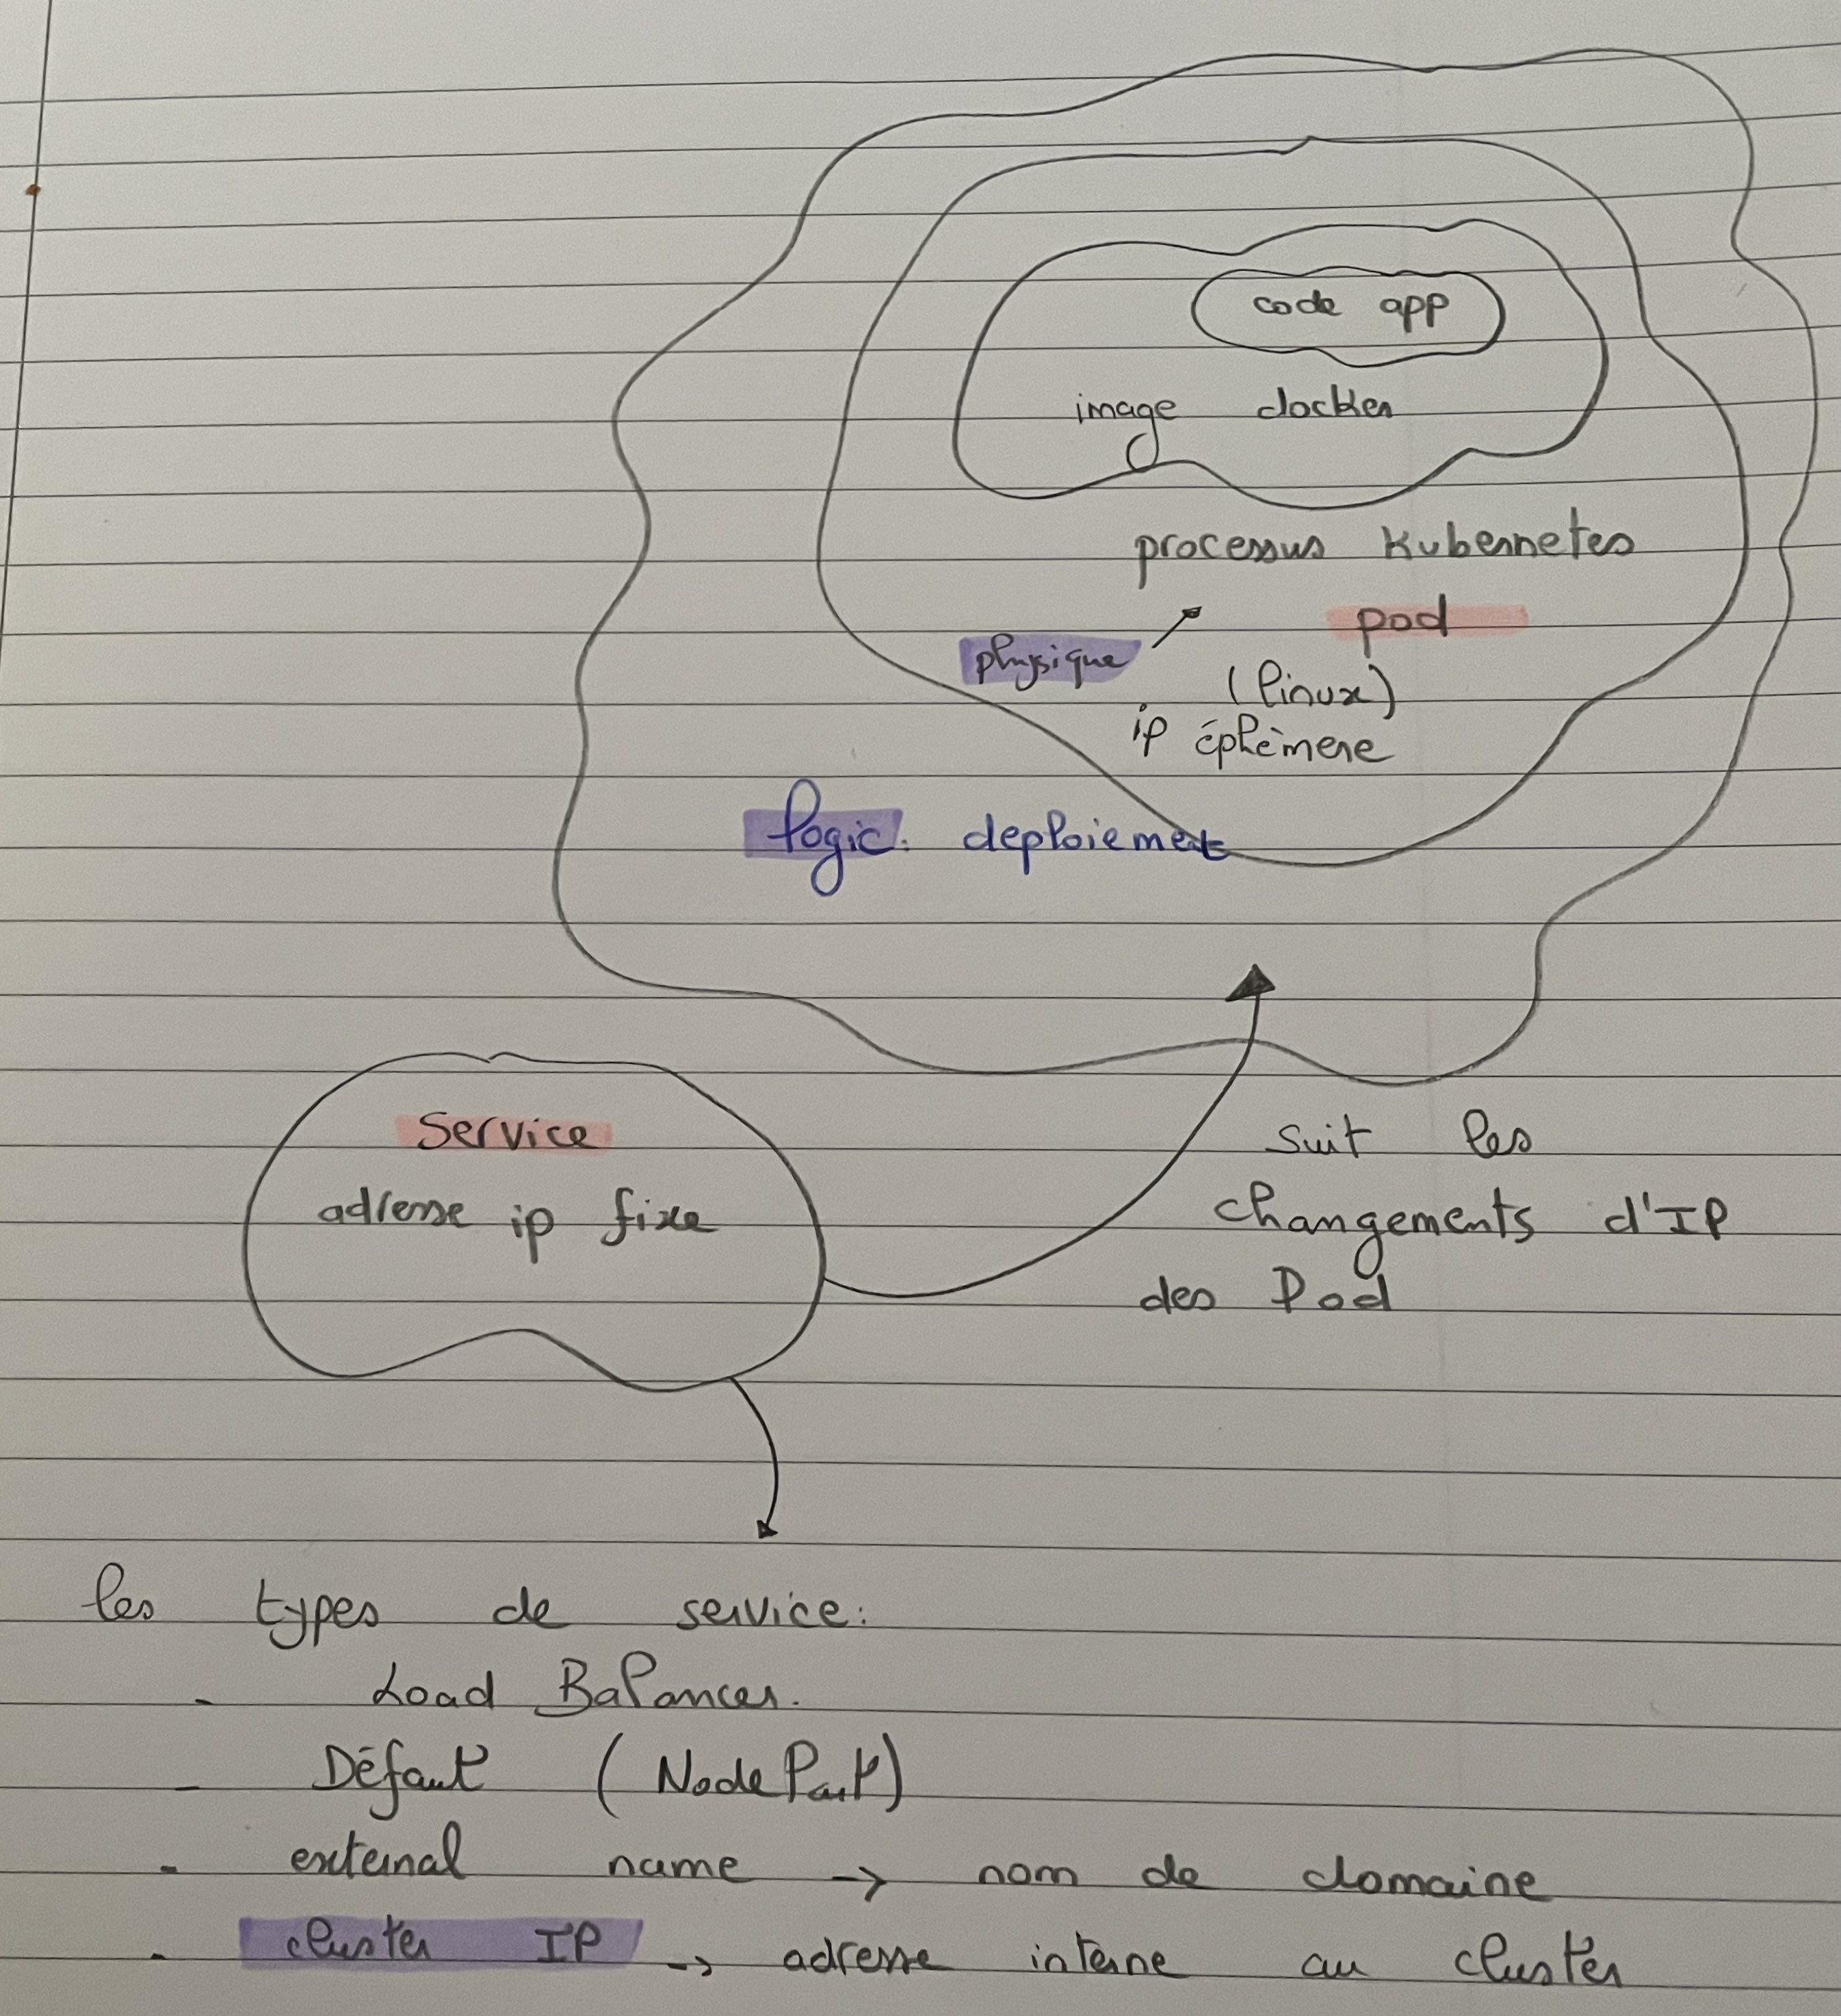 code app
image docker
processus Kubernetes
pod
physique
(linux)
ip éphèmere
logic: deploiement
Service
adresse ip fixe
suit les
changements d'IP
des Pod
les types de service:
- Load Balancer.
- Défaut (NodePort)
- external name -> nom de domaine
- cluster IP -> adresse interne au cluster